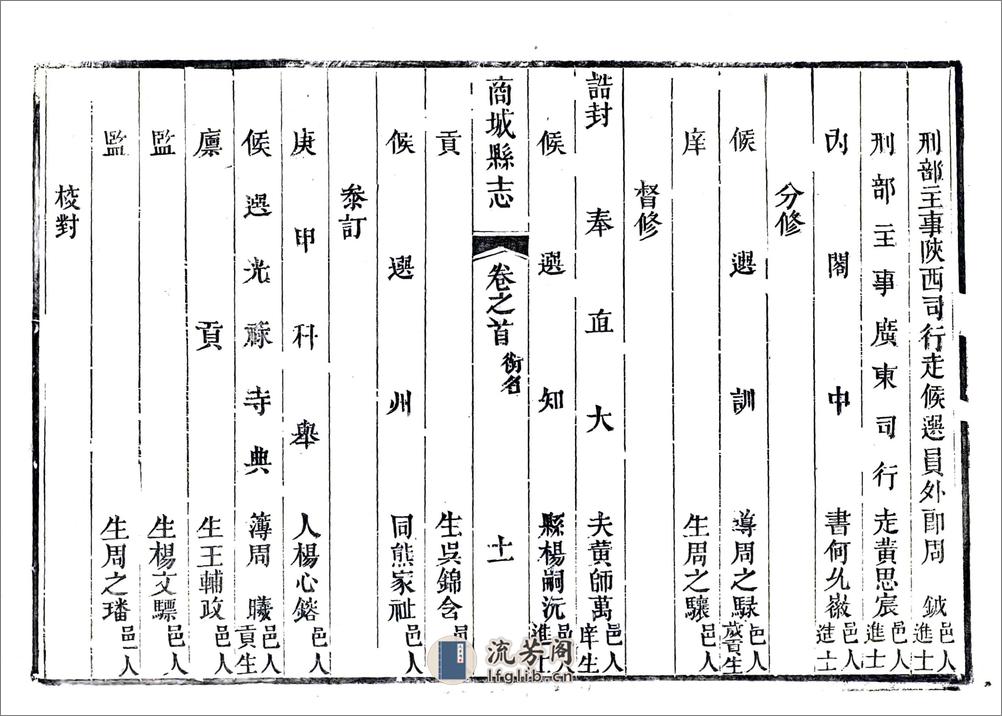 刑部主事陝西司行走候選員外郎周鉞邑人進士
刑部主事廣東司行走黃思宸邑人進士
內閣中書何允嶶邑人進士
分修
候選訓導周之騄邑人廩膳生
庠生周之驤邑人
督修
誥封奉直大夫黃師萬邑人庠生
候選知縣楊嗣沅邑人進士
商城縣志
卷之首
銜名
十一
貢生吳錦含邑
候選州同熊家祉邑人
叅訂
庚甲科舉人楊心鎔邑人
候選光祿寺典簿周曦邑人貢生
廩貢生王輔政邑人
監生楊文驃邑人
監生周之璠邑人
校對
流芳阁
lfglib.cn